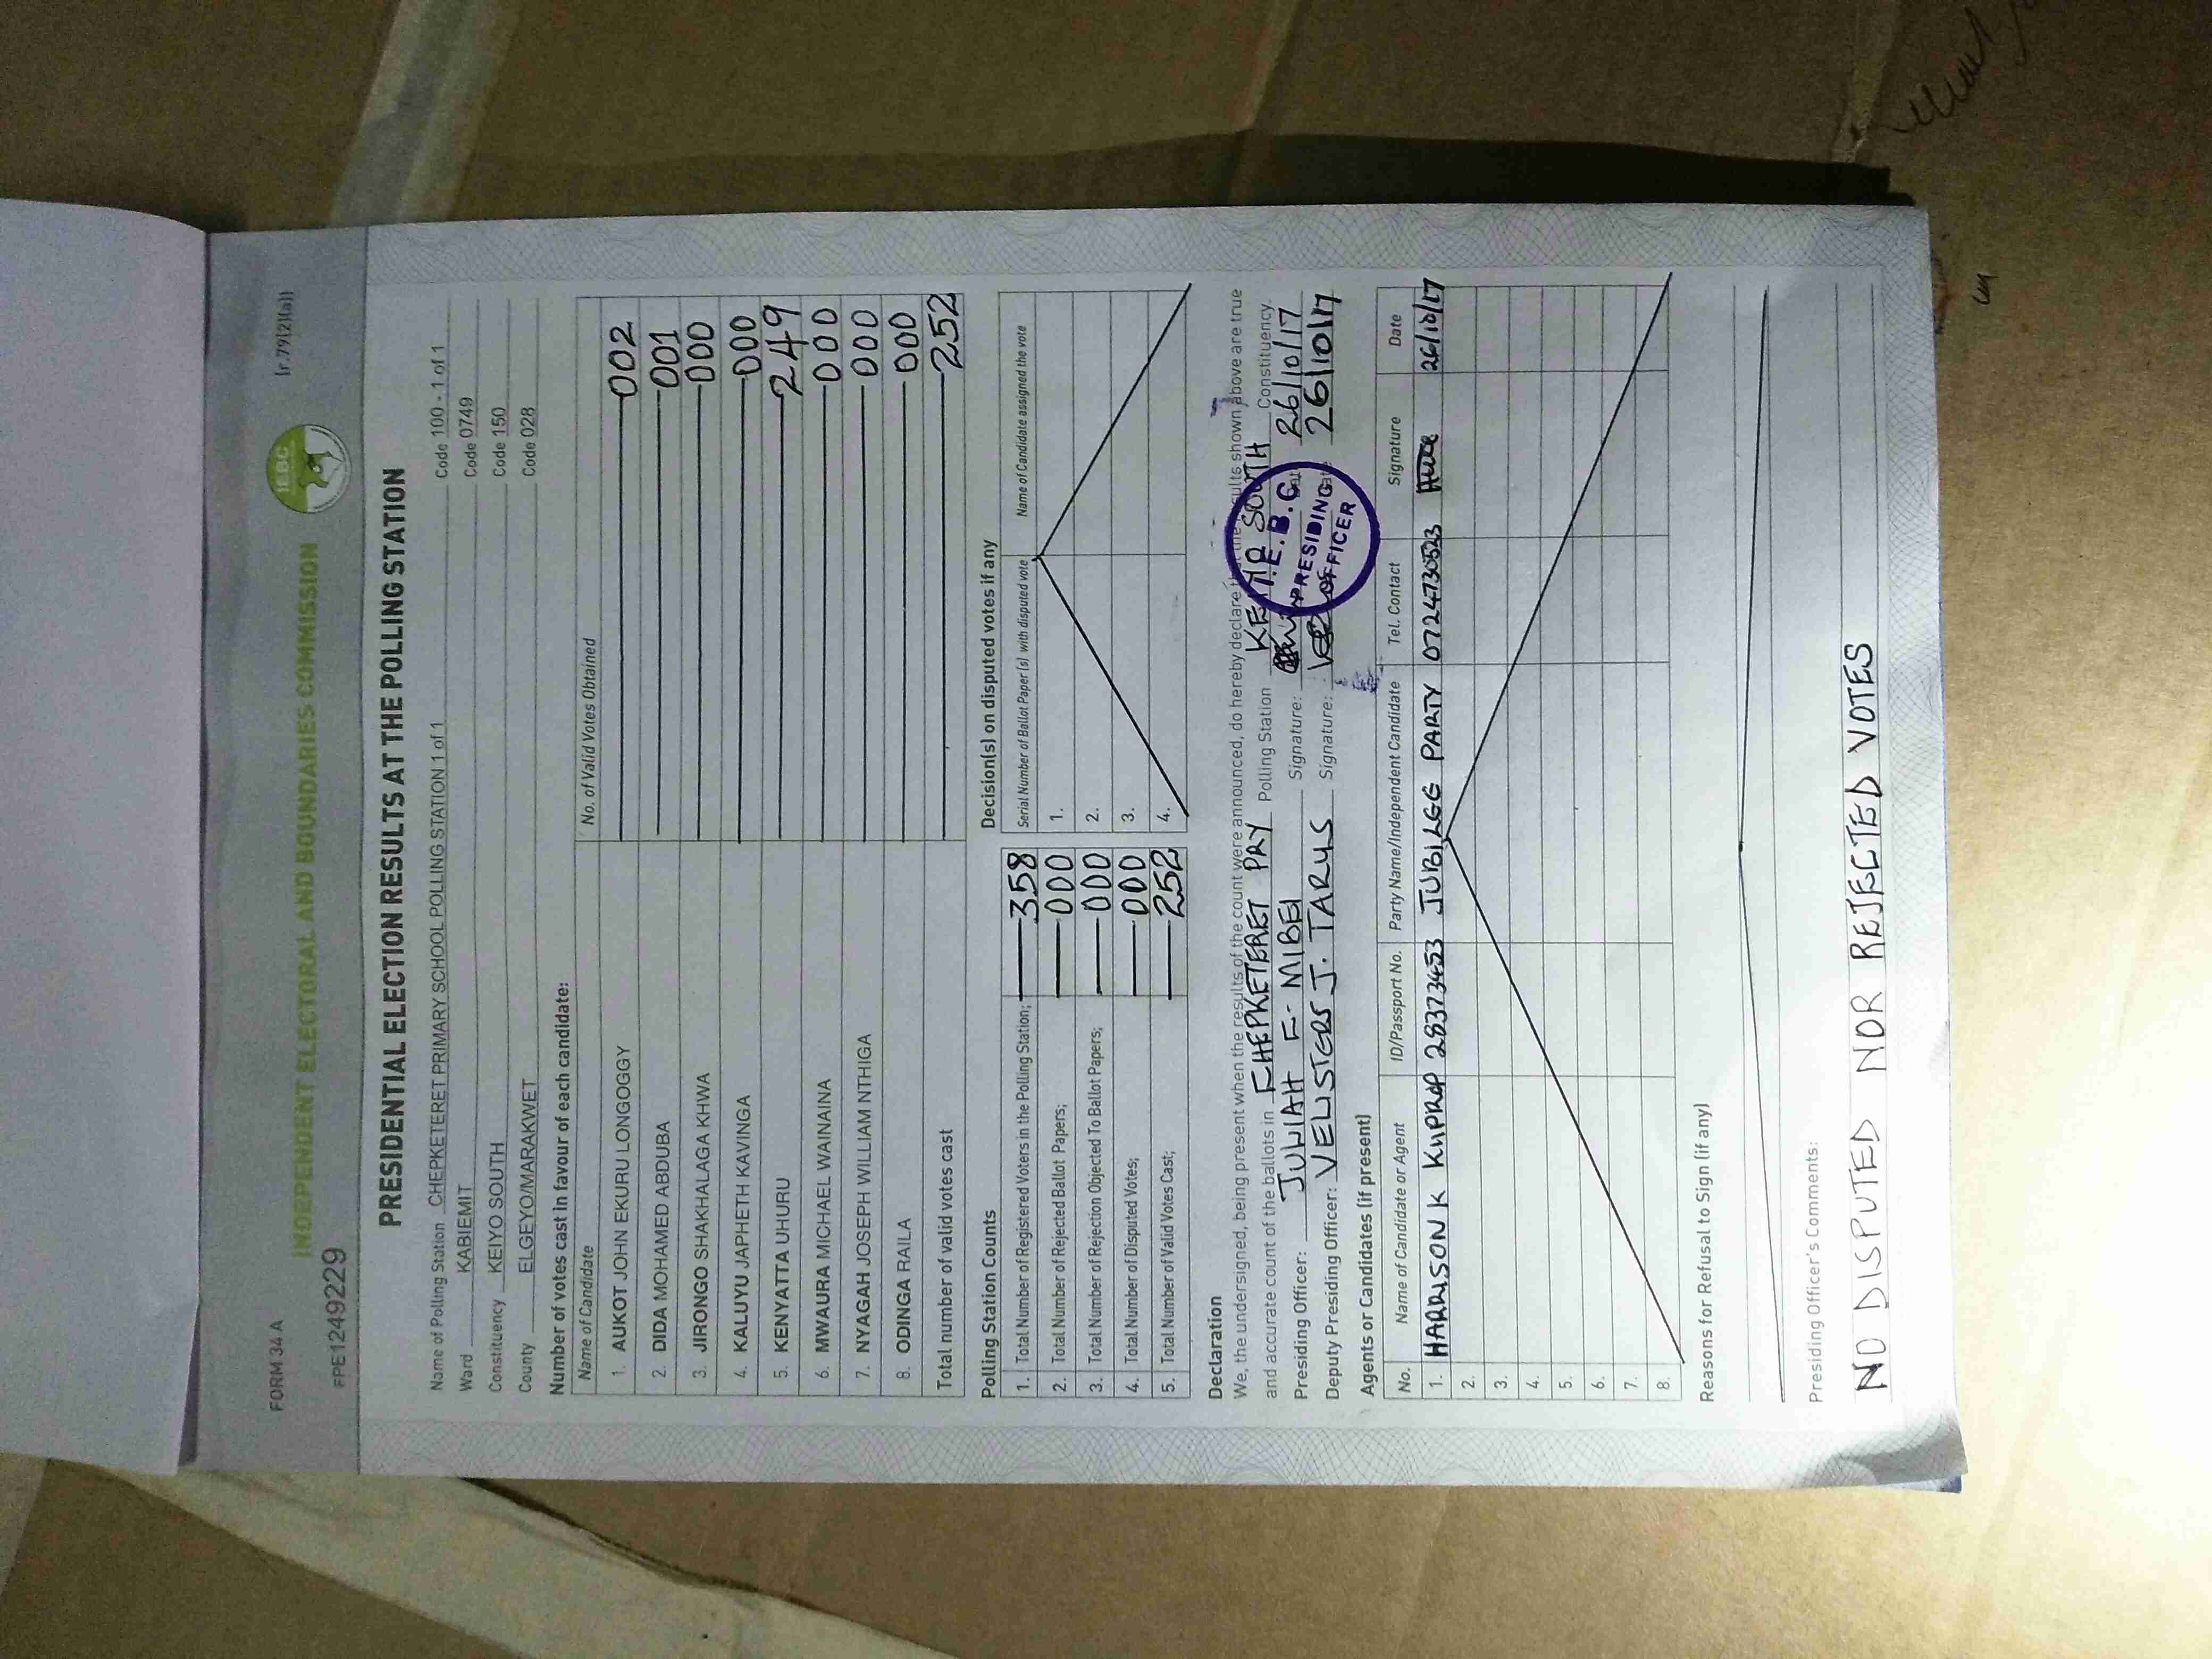 FORM 34 A
[r.79(2)(a)]
INDEPENDENT ELECTORAL AND BOUNDARIES COMMISSION
IEBC
FPE1249229
PRESIDENTIAL ELECTION RESULTS AT THE POLLING STATION
Name of Polling Station CHEPKETERET PRIMARY SCHOOL POLLING STATION 1 of 1 Code 100 - 1 of 1
Ward KABIEMIT Code 0749
Constituency KEIYO SOUTH Code 150
County ELGEYO/MARAKWET Code 028
Number of votes cast in favour of each candidate:
Name of Candidate No. of Valid Votes Obtained
1. AUKOT JOHN EKURU LONGOGGY 002
2. DIDA MOHAMED ABDUBA 001
3. JIRONGO SHAKHALAGA KHWA 000
4. KALUYU JAPHETH KAVINGA 000
5. KENYATTA UHURU 249
6. MWAURA MICHAEL WAINAINA 000
7. NYAGAH JOSEPH WILLIAM NTHIGA 000
8. ODINGA RAILA 000
Total number of valid votes cast 252
Polling Station Counts
1. Total Number of Registered Voters in the Polling Station; 358
2. Total Number of Rejected Ballot Papers; 000
3. Total Number of Rejection Objected To Ballot Papers; 000
4. Total Number of Disputed Votes; 000
5. Total Number of Valid Votes Cast; 252
Decision(s) on disputed votes if any
Serial Number of Ballot Paper (s) with disputed vote Name of Candidate assigned the vote
1.
2.
3.
4.
Declaration
We, the undersigned, being present when the results of the count were announced, do hereby declare that the results shown above are true
and accurate count of the ballots in CHEPKETERET PRY Polling Station KEIYO SOUTH Constituency.
Presiding Officer: E. MIBEI Signature: 26/10/17
Deputy Presiding Officer: J. TARUS Signature: Date 26/10/17
I.E.B.C
PRESIDING
OFFICER
Agents or Candidates (if present)
No. Name of Candidate or Agent ID/Passport No. Party Name/Independent Candidate Tel. Contact Signature Date
1. HARRISON K KUPROP 28373453 JUBILEE PARTY 0724730523 26/10/17
2.
3.
4.
5.
6.
7.
8.
Reasons for Refusal to Sign (if any)
Presiding Officer's Comments:
NO DISPUTED NOR REJECTED VOTES